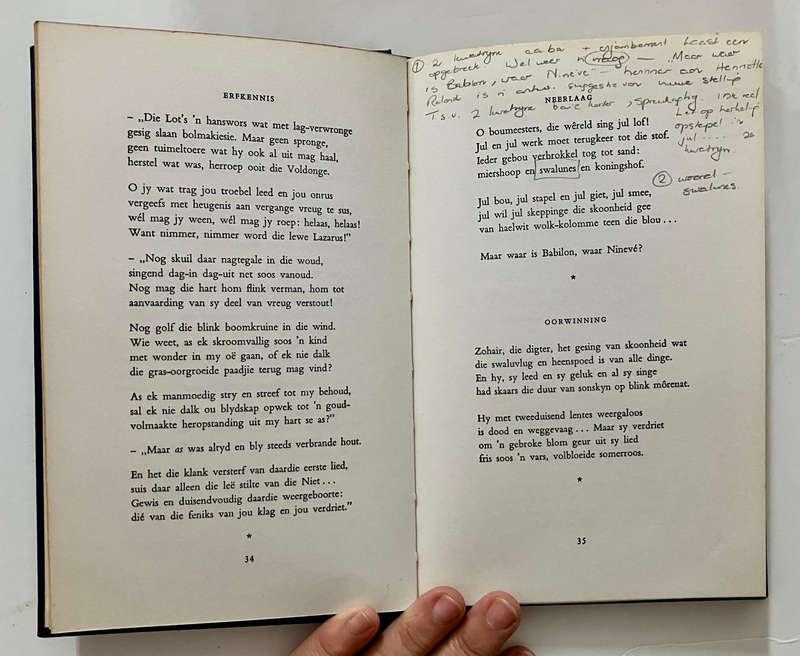 ERFKENNIS
– „Die Lot's 'n hanswors wat met lag-verwronge
gesig slaan bolmakiesie. Maar geen spronge,
geen tuimeltoere wat hy ook al uit mag haal,
herstel wat was, herroep ooit die Voldonge.
O jy wat trag jou troebel leed en jou onrus
vergeefs met heugenis aan vergange vreug te sus,
wél mag jy ween, wél mag jy roep: helaas, helaas!
Want nimmer, nimmer word die lewe Lazarus!”
– „Nog skuil daar nagtegale in die woud,
singend dag-in dag-uit net soos vanoud.
Nog mag die hart hom flink verman, hom tot
aanvaarding van sy deel van vreug verstout!
Nog golf die blink boomkruine in die wind.
Wie weet, as ek skroomvallig soos 'n kind
met wonder in my oë gaan, of ek nie dalk
die gras-oorgroeide paadjie terug mag vind?
As ek manmoedig stry en streef tot my behoud,
sal ek nie dalk ou blydskap opwek tot 'n goud-
volmaakte heropstanding uit my hart se as?”
– „Maar as was altyd en bly steeds verbrande hout.
En het die klank versterf van daardie eerste lied,
suis daar alleen die leë stilte van die Niet...
Gewis en duisendvoudig daardie weergeboorte:
dié van die feniks van jou klag en jou verdriet.”
*
34
① 2 kwatryne aaba + enjambement Laast een
opgebreek Wel weer 'n vraag – Maar waar
is Babilon, waar Ninevé – herinner aan Henriette
Roland is 'n suggestie van
T.s.v. 2 kwatryne baie korter,
Let op herhaling
jul ....
kwatryn
② woord –
swalunes.
NEERLAAG
O boumeesters, die wêreld sing jul lof!
Jul en jul werk moet terugkeer tot die stof.
Ieder gebou verbrokkel tog tot sand:
miershoop en swalunes en koningshof.
Jul bou, jul stapel en jul giet, jul smee,
jul wil jul skeppinge die skoonheid gee
van haelwit wolk-kolomme teen die blou...
Maar waar is Babilon, waar Ninevé?
*
OORWINNING
Zohair, die digter, het gesing van skoonheid wat
die swaluvlug en heenspoed is van alle dinge.
En hy, sy leed en sy geluk en al sy singe
had skaars die duur van sonskyn op blink môrenat.
Hy met tweeduisend lentes weergaloos
is dood en weggevaag... Maar sy verdriet
om 'n gebroke blom geur uit sy lied
fris soos 'n vars, volbloeide somerroos.
*
35